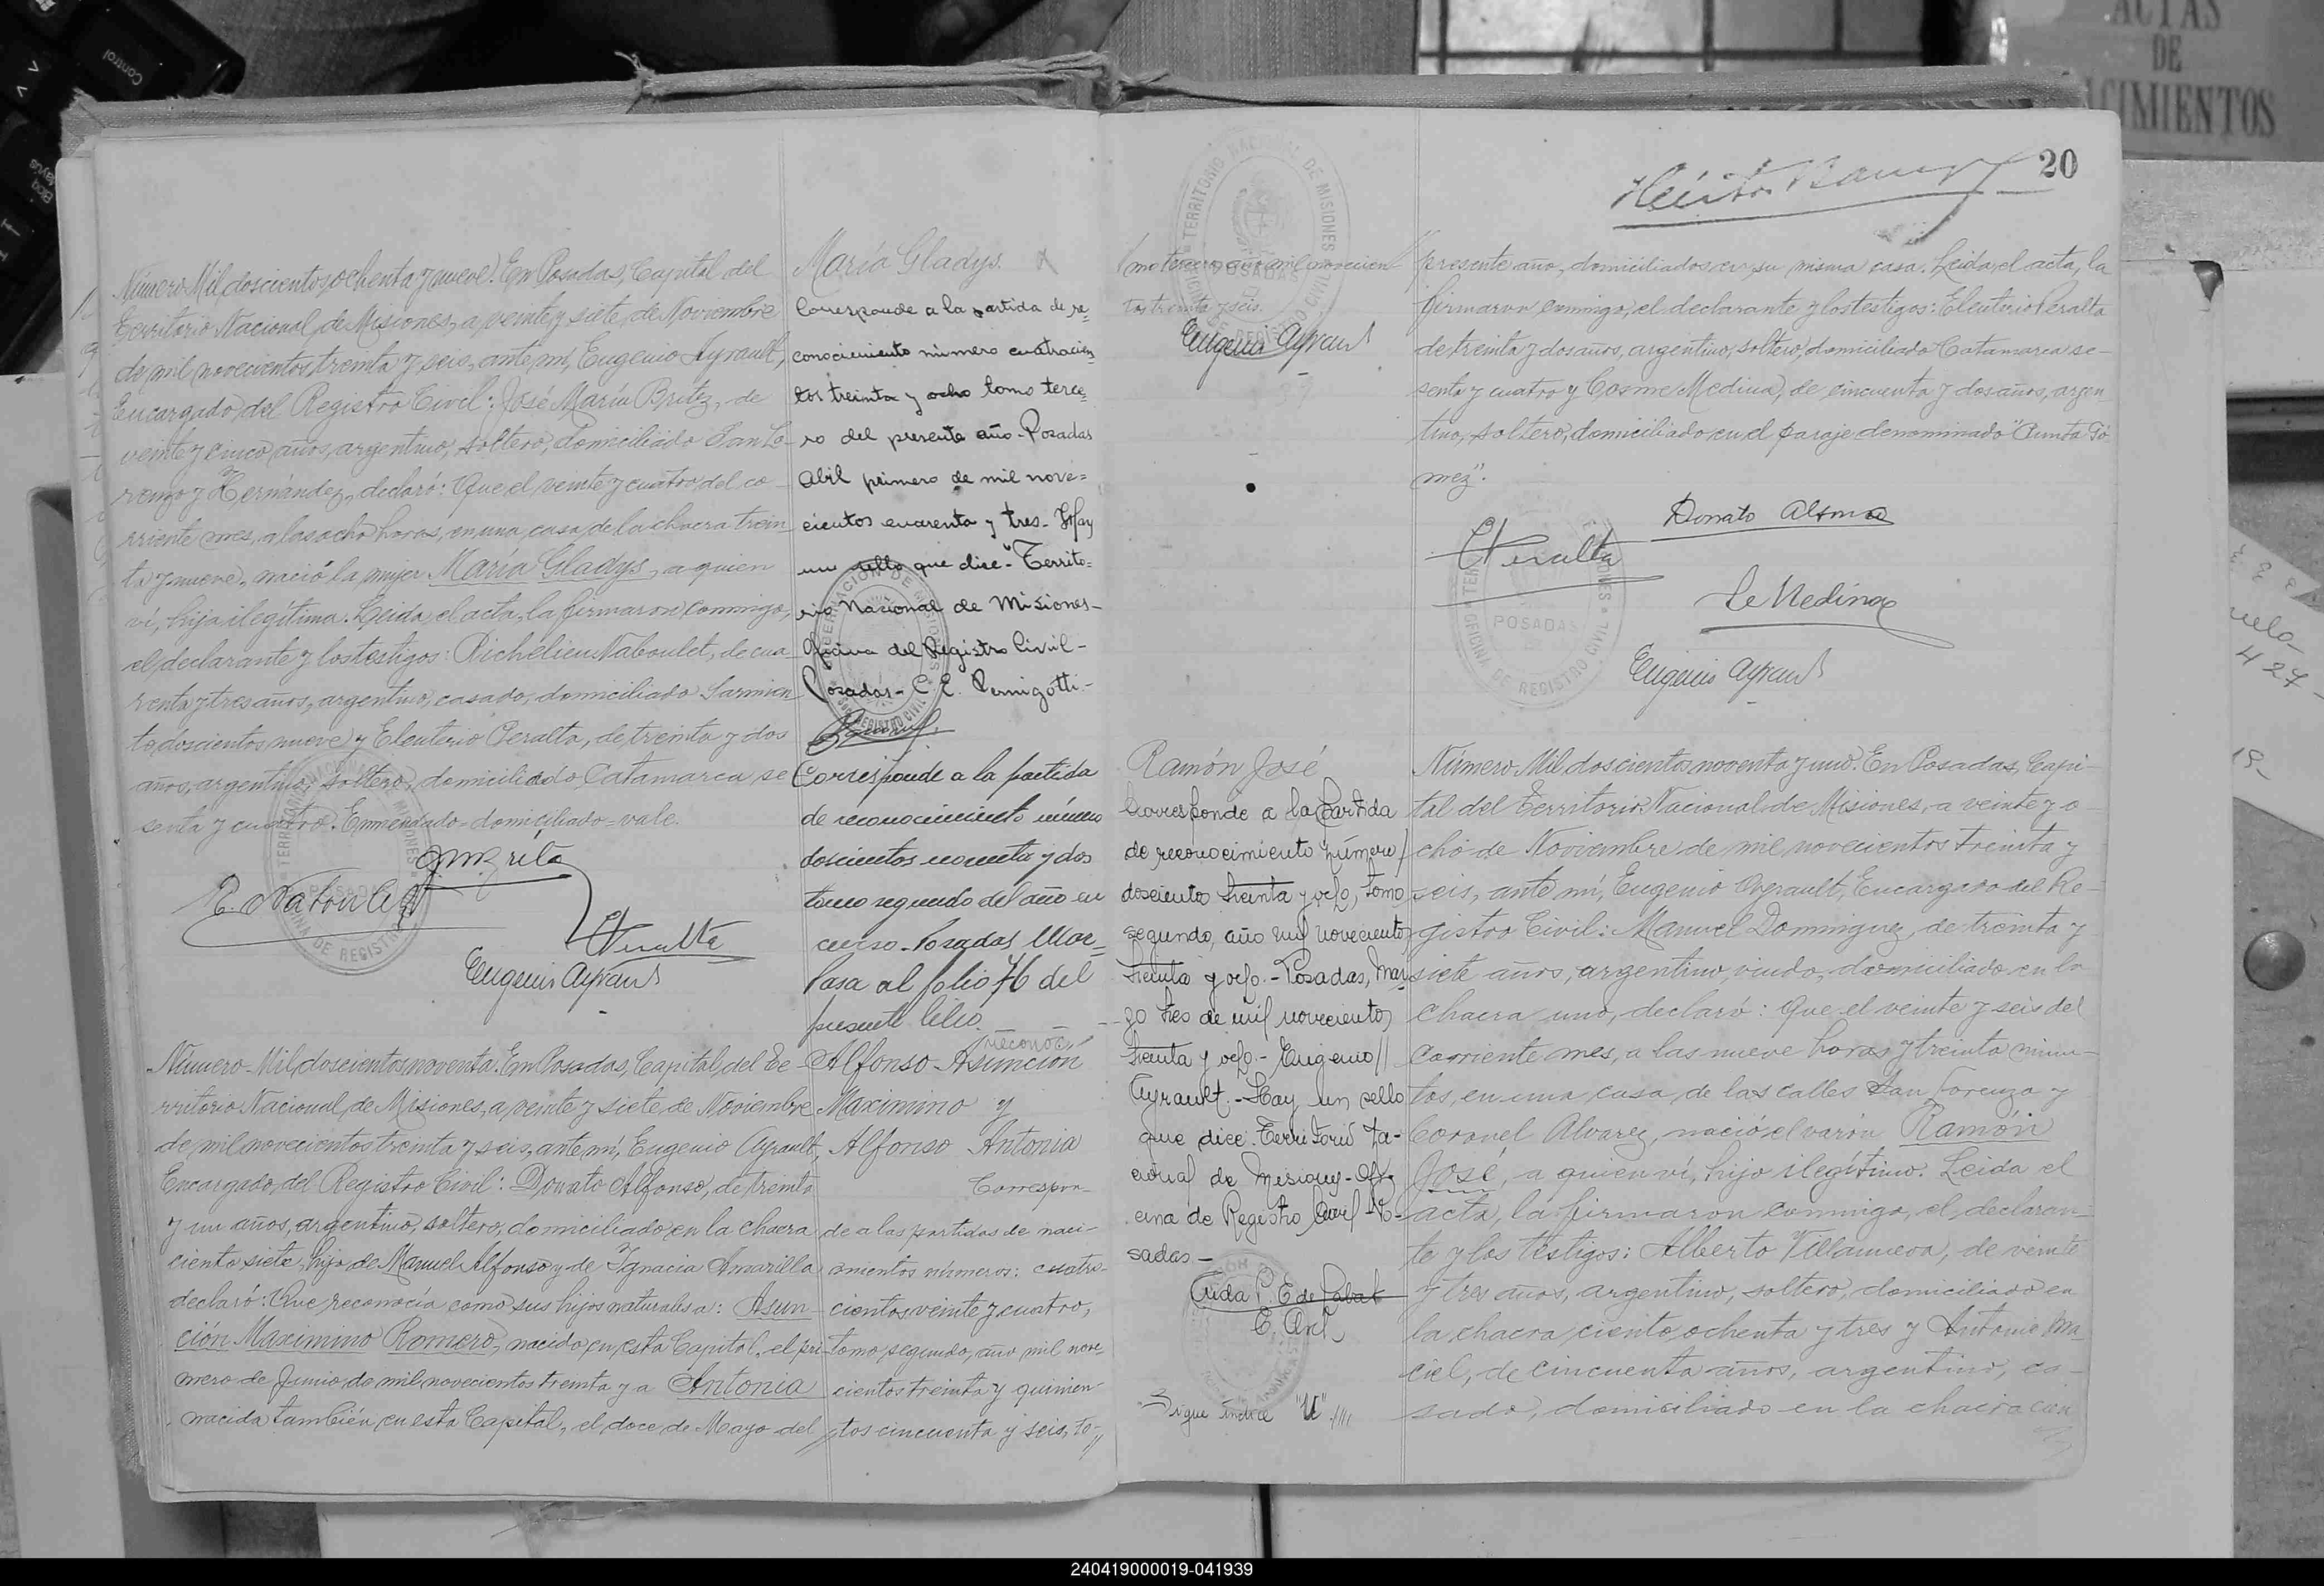 Número Mil doscientos ochenta y nueve. En Posadas, Capital del
Territorio Nacional de Misiones, a veinte y siete de Noviembre
de mil novecientos treinta y seis, ante mí, Eugenio Ayrault,
Encargado del Registro Civil: José María Britez, de
veinte y cinco años, argentino, soltero, domiciliado San Lo-
renzo y Hernández, declaró: Que el veinte y cuatro del co-
rriente mes, a las ocho horas, en una casa de la chacra trein
ta y nueve, nació la mujer María Gladys, a quien
ví, hija ilegítima. Leida el acta, la firmaron conmigo,
el declarante y los testigos: Richelieu Naboulet, de cua
renta y tres años, argentino, casado, domiciliado Sarmien
to doscientos nueve y Eleuterio Peralta, de treinta y dos
años, argentino, soltero, domiciliado Catamarca se
senta y cuatro. Enmendado=domiciliado=vale.
Eugenio Ayrault
María Gladys.
Corresponde a la partida de re-
conocimiento número cuatrocien
tos treinta y ocho tomo terce-
ro del presente año-Posadas
Abril primero de mil nove=
cientos cuarenta y tres- Hay
un sello que dice-"Territo=
rio Nacional de Misiones-
Oficina del Registro Civil-
Posadas- C. E. Pernigotti-
Corresponde a la partida
de reconocimiento número
doscientos noventa y dos
tomo segundo del año en
curso. Posadas Mar-
Pasa al folio 76 del
presente libro.
Número Mil doscientos noventa. En Posadas, Capital del Te-
rritorio Nacional de Misiones, a veinte y siete de Noviembre
de mil novecientos treinta y seis, ante mí, Eugenio Ayrault,
Encargado del Registro Civil: Donato Alfonso, de treinta
y un años, argentino, soltero, domiciliado en la chacra
ciento siete, hijo de Manuel Alfonso y de Ignacia Amarilla
declaró: Que reconocía como sus hijos naturales a: Asun-
ción Maximino Romero, nacido en esta Capital, el pri-
mero de Junio de mil novecientos treinta y a Antonia
nacida también en esta Capital, el doce de Mayo del
Alfonso Asunción
Maximino y
Alfonso Antonia
Correspon-
de a las partidas de naci-
mientos números: cuatro-
cientos veinte y cuatro,
tomo segundo, año mil nove-
cientos treinta y quinien-
tos cincuenta y seis, to-
mo tercero año mil novecien
tos treinta y seis.
Eugenio Ayrault
20
presente año, domiciliados en su misma casa. Leida el acta, la
firmaron conmigo, el declarante y los testigos: Eleuterio Peralta
de treinta y dos años, argentino, soltero, domiciliado Catamarca se-
senta y cuatro y Cosme Medina, de cincuenta y dos años, argen
tino, soltero, domiciliado en el paraje denominado "Punta Gó-
mez".
Donato Alfonso
EPeralta
C Medina
Eugenio Ayrault
Ramón José
Corresponde a la Partida
de reconocimiento número
doscientos treinta y ocho, tomo
segundo, año mil novecientos
treinta y ocho.- Posadas, Mar-
zo tres de mil novecientos
treinta y ocho.- Eugenio
Ayrault.- Hay un sello
que dice: Territorio Na-
cional de Misiones-Ofi-
cina de Registro Civil-Po-
sadas-
Sigue índice "U"
Número Mil doscientos noventa y uno. En Posadas, Capi-
tal del Territorio Nacional de Misiones, a veinte y o-
cho de Noviembre de mil novecientos treinta y
seis, ante mí, Eugenio Ayrault, Encargado del Re-
gistro Civil: Manuel Dominguez, de treinta y
siete años, argentino, viudo, domiciliado en la
chacra uno, declaró: Que el veinte y seis del
corriente mes, a las nueve horas y treinta minu-
tos, en una casa de las calles San Lorenzo y
Coronel Alvarez, nació el varón Ramón
José, a quien ví, hijo ilegítimo. Leida el
acta, la firmaron conmigo, el declaran-
te y los testigos: Alberto Villanueva, de veinte
y tres años, argentino, soltero, domiciliado en
la chacra ciento ochenta y tres y Antonio Ma
ciel, de cincuenta años, argentino, ca-
sado, domiciliado en la chacra cien
ACTAS
DE
CIMIENTOS
Control
240419000019-041939